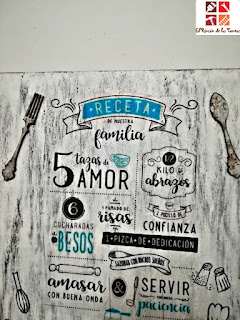 El Rincón de las Tareas
RECETA
DE NUESTRA
familia
5 tazas de
AMOR
1/2
KILO de
abrazos
6
CUCHARADAS
de BESOS
1 PUÑADO DE
risas
1 POQUITO DE
CONFIANZA
1 PIZCA DE DEDICACIÓN
SAZONAR CON MUCHOS SUEÑOS
amasar
CON BUENA ONDA
&
SERVIR
con
paciencia